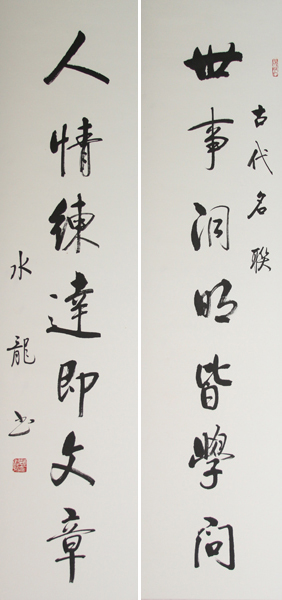 古代名联
世事洞明皆學問
人情練達即文章
水龍书